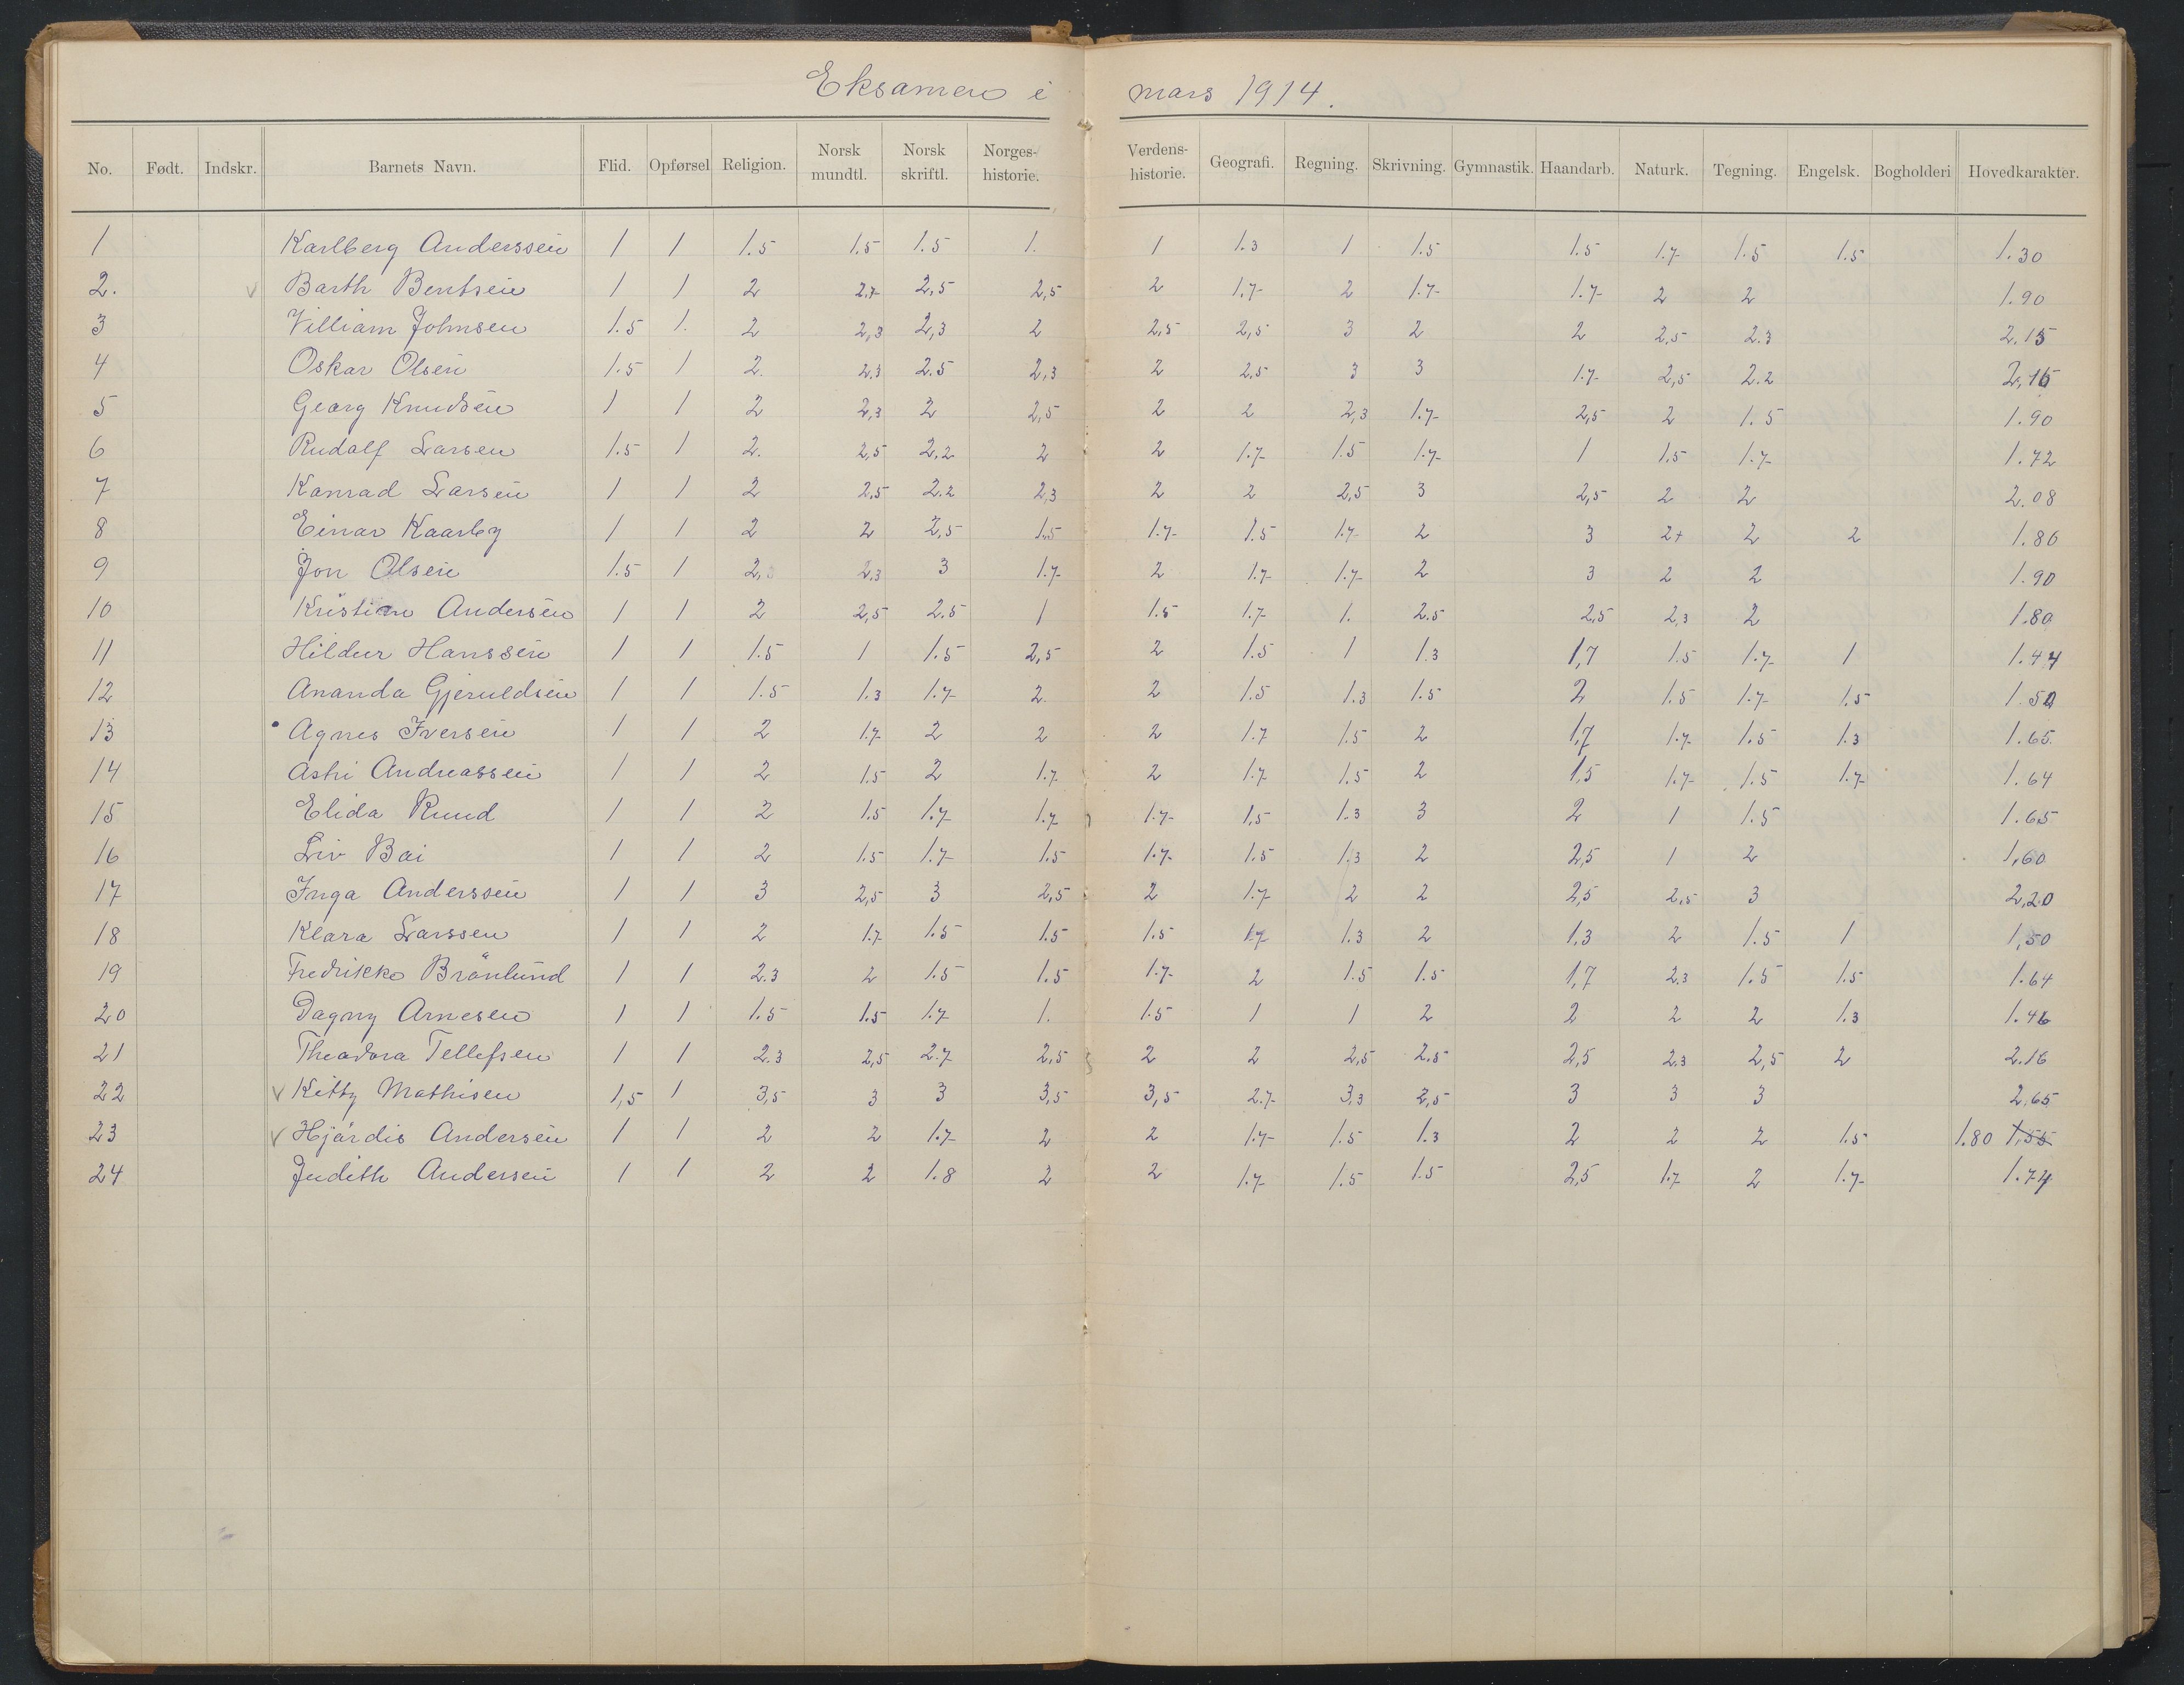 Eksamen i mars 1914.
No. Født. Indskr. Barnets Navn. Flid. Opførsel Religion. Norsk mundtl. Norsk skriftl. Norges-historie. Verdens-historie. Geografi. Regning. Skrivning. Gymnastik. Haandarb. Naturk. Tegning. Engelsk. Bogholderi Hovedkarakter.
1 Karlberg Anderssen 1 1 1.5 1.5 1.5 1. 1 1.3 1 1.5 1.5 1.7 1.5 1.5 1.30
2. v Barth Bentsen 1 1 2 2.7 2,5 2,5 2 1.7 2 1.7 1.7 2 2 1.90
3 Villiam Johnsen 1.5 1. 2 2,3 2,3 2 2.5 2,5 3 2 2 2,5 2.3 2.15
4 Oskar Olsen 1.5 1 2. 2.3 2.5 2,3 2 2,5 3 3 1.7 2,5 2.2 2,16
5 Georg Knudsen 1 1 2 2,3 2 2,5 2 2 2,3 1.7 2,5 2 1.5 1.90
6 Rudolf Larsen 1.5 1 2. 2,5 2.2 2 2 1.7 1.5 1.7 1 1.5 1.7 1.72
7 Konrad Larsen 1 1 2 2,5 2.2 2,3 2 2 2,5 3 2,5 2 2 2.08
8 Einar Kaarbø 1 1 2 2 2,5 1.5 1.7 1.5 1.7 2 3 2+ 2 2 1.86
9 Jon Olsen 1.5 1 2, 2.3 3 1.7 2 1.7 1.7 2 3 2 2 1.90
10 Kristian Andersen 1 1 2 2,5 2.5 1 1.5 1.7 1. 2.5 2,5 2,3 2 1.80
11 Hildur Hanssen 1 1 1.5 1 1.5 2,5 2 1.5 1 1.3 1,7 1.5 1.7 1 1.44
12 Ananda Gjeruldsen 1 1 1.5 1.3 1.7 2. 2 1.5 1.3 1.5 2 1.5 1.7 1.5 1.50
13 Agnes Iversen 1 1 2 1.7 2 2 2 1.7 1.5 2 1,7 1.7 1.5 1.3 1.65
14 Astri Andreassen 1 1 2 1.5 2 1.7 2 1.7 1.5 2 1,5 1.7 1.5 1.7 1.64
15 Elida Ruud 1 1 2 1.5 1.7 1.7 1.7 1,5 1.3 3 2 1 1.5 1.65
16 Liv Bai 1 1 2 1.5 1.7 1.5 1.7 1.5 1.3 2 2,5 1 2 1,60
17 Inga Anderssen 1 1 3 2,5 3 2,5 2 1.7 2 2 2,5 2,5 3 2,20
18 Klara Larssen 1 1 2 1.7 1.5 1.5 1.5 1.7 1.3 2 1,3 2 1.5 1 1,50
19 Fredrikke Brånlund 1 1 2.3 2 1.5 1.5 1.7 2 1.5 1.5 1,7 2.3 1.5 1.5 1.64
20 Dagny Arnesen 1 1 1.5 1.5 1.7 1. 1.5 1 1 2 2 2 2 1.3 1.46
21 Theodora Tellefsen 1 1 2.3 2,5 2.7 2,5 2 2 2,5 2.5 2,5 2.3 2,5 2 2.16
22 v Kitty Mathisen 1,5 1 3,5 3 3 3,5 3,5 2.7 3.3 2,5 3 3 3 2.65
23 v Hjördis Andersen 1 1 2 2 1.7 2 2 1.7 1.5 1.3 2 2 2 1.5 1.80 1,55
24 Judith Andersen 1 1 2 2 1.8 2 2 1.7 1.5 1.5 2,5 1.7 2 1.7 1.74